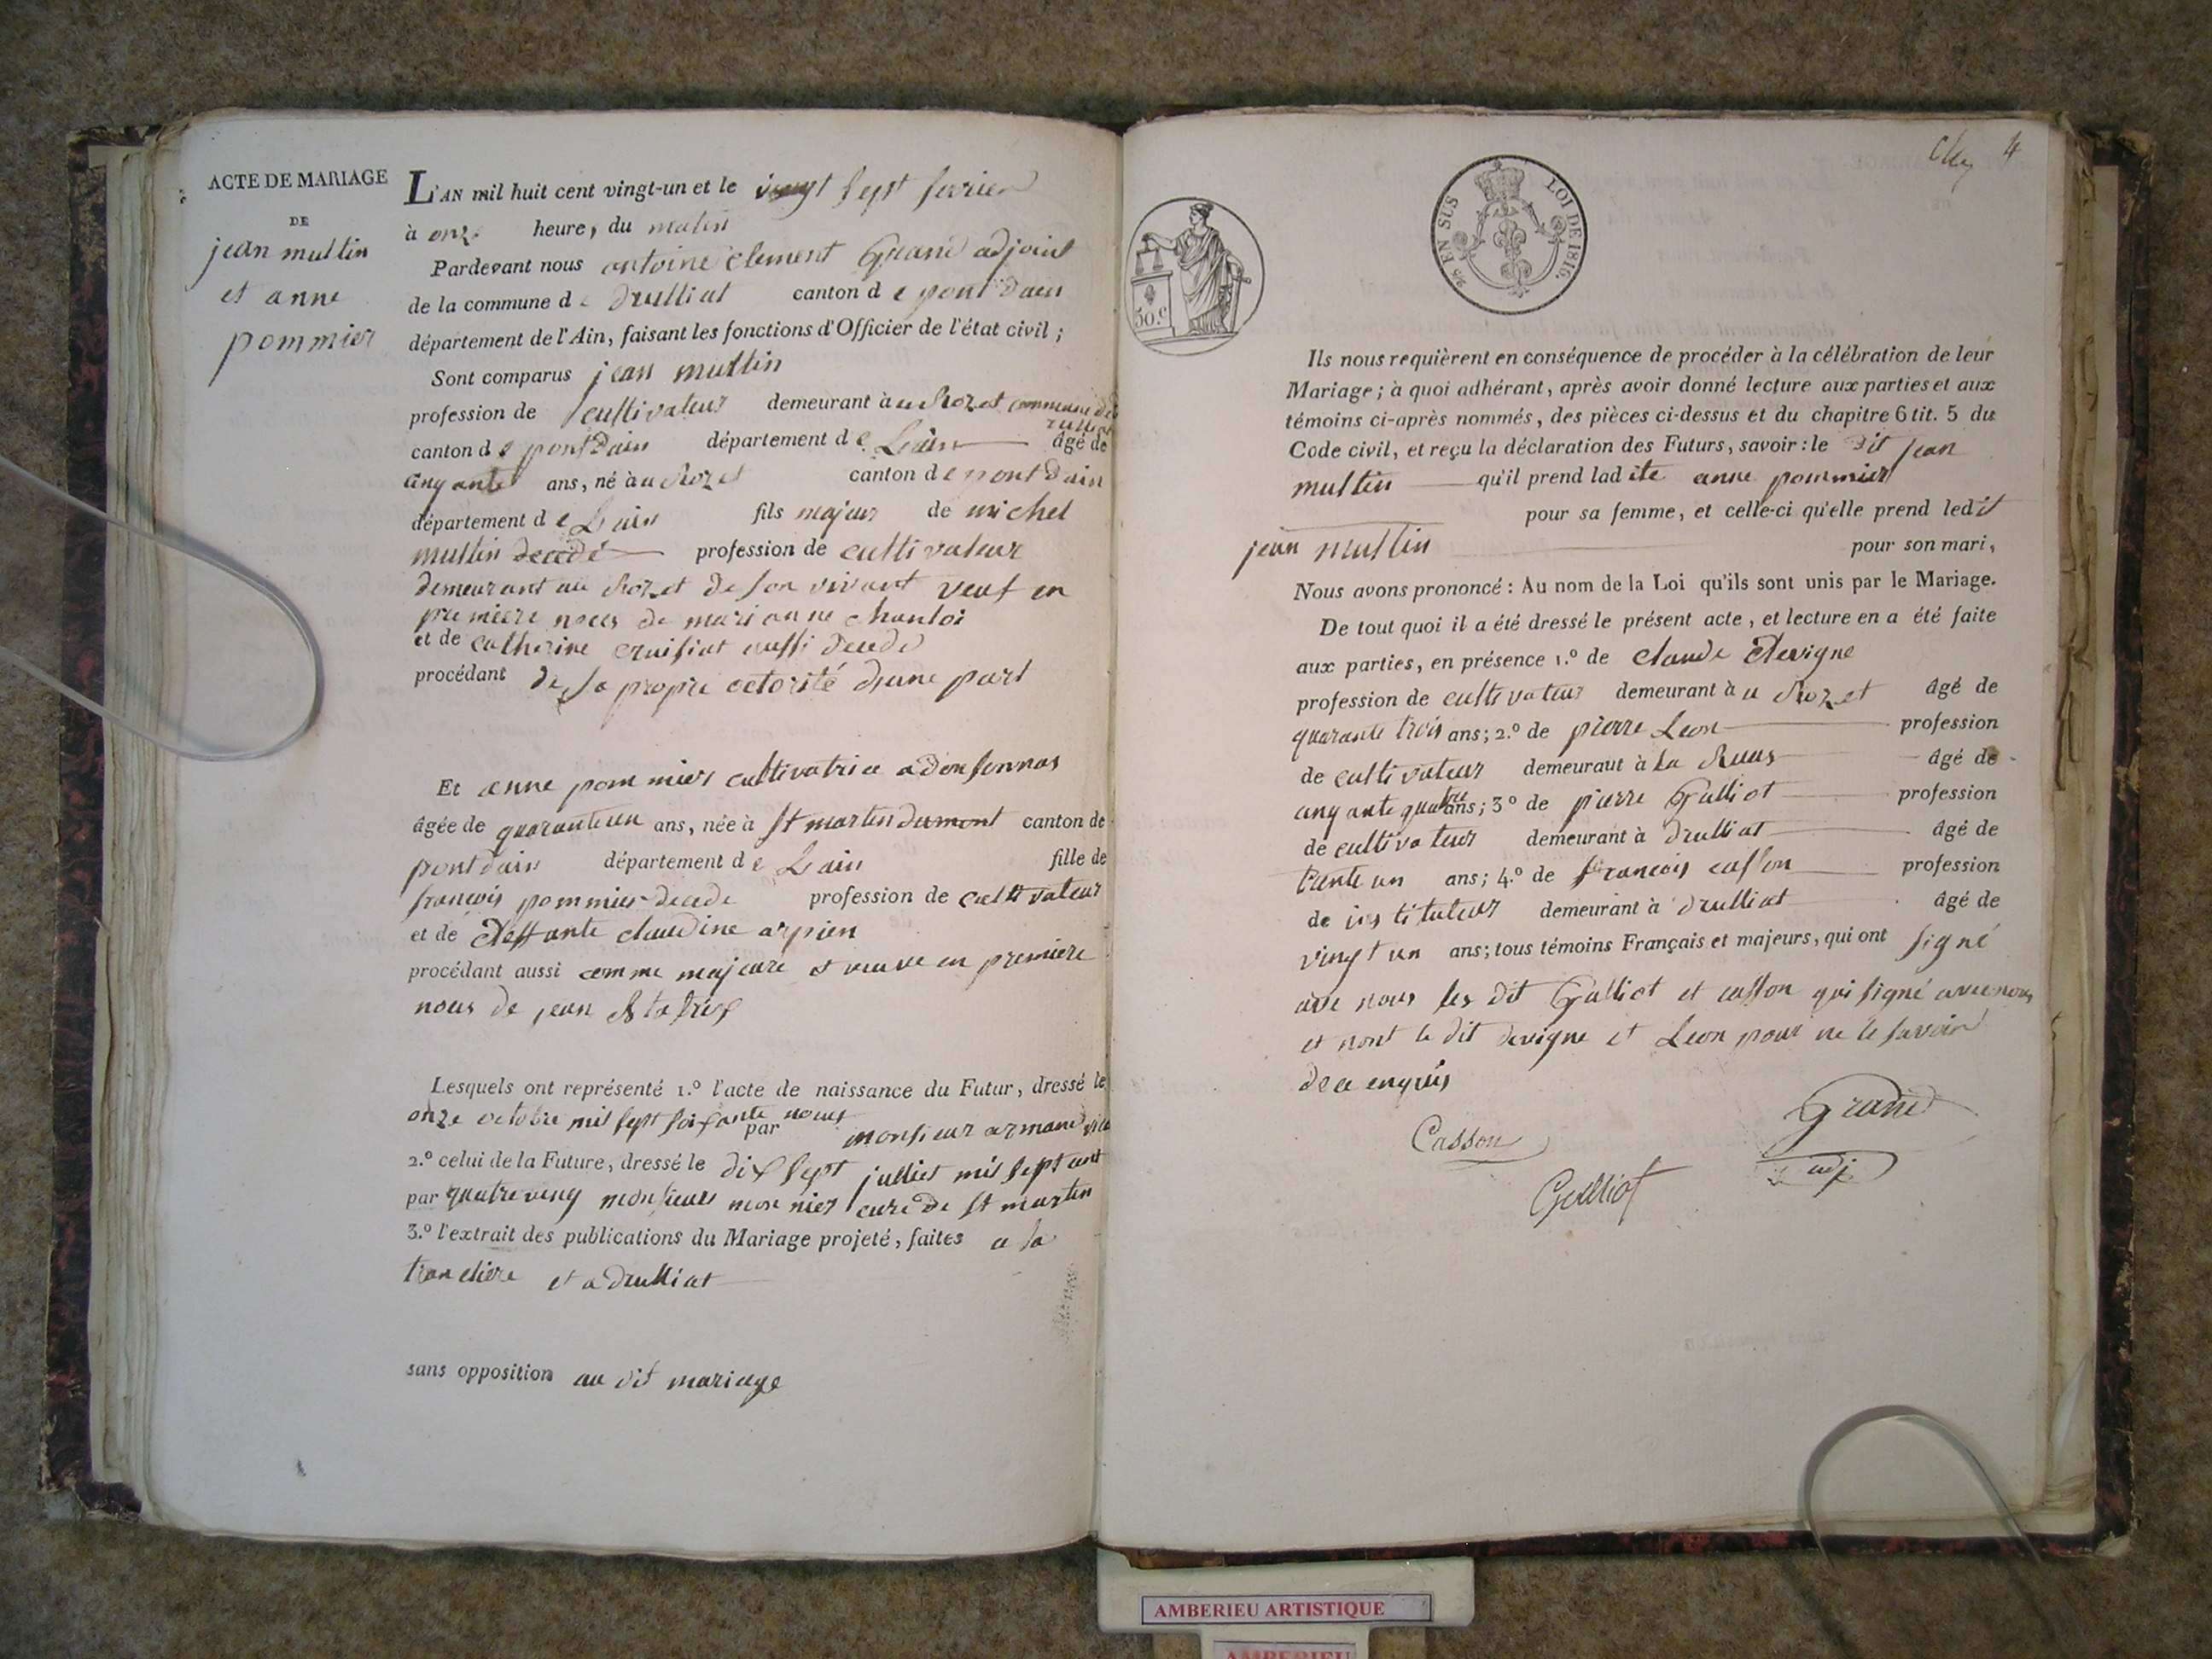 ACTE DE MARIAGE
DE
jean multin
et anne
pommier
L'AN mil huit cent vingt-un et le vingt sept fevrier
à onze heure, du matin
Pardevant nous antoine clement Grand adjoint
de la commune de drulliat canton de pont dain
département de l'Ain, faisant les fonctions d'Officier de l'état civil ;
Sont comparus jean multin
profession de cultivateur demeurant à u Rozet commune de
canton de pont Dain département de Lain âgé de
cinqante ans, né à u Rozet canton de pont Dain
département de Lain fils majeur de michel
multin decedé profession de cultivateur
demeurant au Rozet de son vivant veuf en
premiere noces de marianne chanloi
et de catherine cruisiat aussi decede
procédant de sa propre octorité d'une part
Et anne pommier cultivatrice a donsonnas
âgée de quarante un ans, née à st martin dumont canton de
pontdain département de Lain fille de
francois pommier decede profession de cultivateur
et de deffante claudine arpien
procédant aussi comme majeure et veuve en premiere
nous de jean
Lesquels ont représenté 1.º l'acte de naissance du Futur, dressé le
onze octobre mil sept soisante nouf
par monsieur armand
2.º celui de la Future, dressé le dix sept julliet mil sept cent
par quatre ving monsieur monnier curé de st martin
3.º l'extrait des publications du Mariage projeté, faites a la
trancliere et a drulliat
sans opposition au dit mariage
4
50.c
2/5 EN SUS LOI DE 1816.
Ils nous requièrent en conséquence de procéder à la célébration de leur
Mariage ; à quoi adhérant, après avoir donné lecture aux parties et aux
témoins ci-après nommés, des pièces ci-dessus et du chapitre 6 tit. 5 du
Code civil, et reçu la déclaration des Futurs, savoir : le dit jean
multin qu'il prend ladite anne pommier
pour sa femme, et celle-ci qu'elle prend ledit
jean multin pour son mari,
Nous avons prononcé : Au nom de la Loi qu'ils sont unis par le Mariage.
De tout quoi il a été dressé le présent acte, et lecture en a été faite
aux parties, en présence 1.º de claude devigne
profession de cultivateur demeurant à u Rozet âgé de
quarante trois ans ; 2.º de pierre Leon profession
de cultivateur demeurant à La Ruas âgé de
cinqante quatre ans ; 3º de pierre Gulliot profession
de cultivateur demeurant à drulliat âgé de
trente un ans ; 4.º de francois casson profession
de instituteur demeurant à drulliat âgé de
vingt un ans ; tous témoins Français et majeurs, qui ont signé
ave nous les dit Gulliot et casson qui signé avec nous
et nont le dit devigne et Leon pour ne le savoir
de ce enquis
Grand
Casson
adj.
Gulliot
AMBERIEU ARTISTIQUE
AMBERIEU